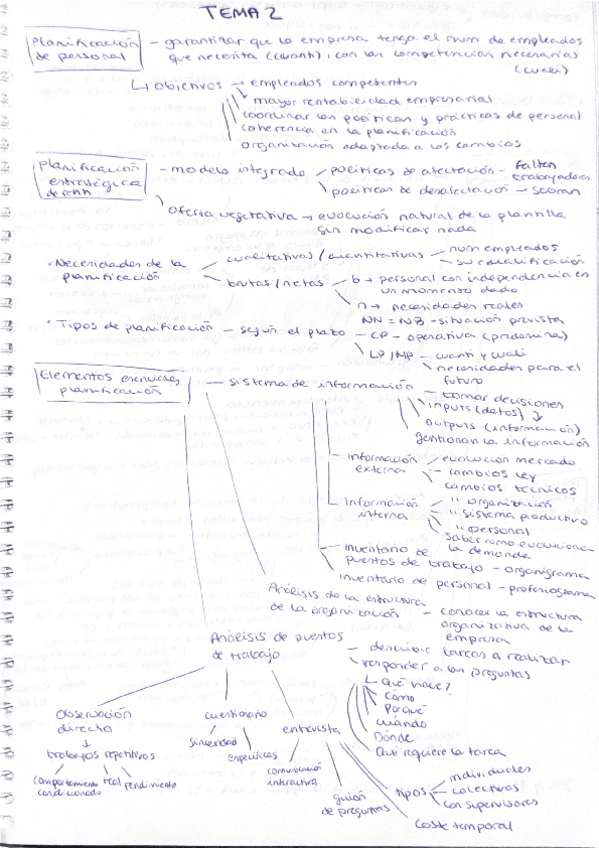 TEMA 2
Planificación de personal - garantizar que la empresa tenga el num de empleados
que necesita (cuanti), con las competencias necesarias
(cuali)
↳ objetivos - empleados competentes
mayor rentabilidad empresarial
coordinar las políticas y prácticas de personal
coherencia en la planificación
organización adaptada a los cambios
Planificación estratégica de RRHH - modelo integrado
políticas de afectación - faltan trabajadores
políticas de desafectación - sobran
oferta vegetativa → evolución natural de la plantilla
sin modificar nada
• Necesidades de la planificación
cualitativas / cuantitativas
num empleados
su cualificación
brutas / netas
b → personal con independencia en
un momento dado
n → necesidades reales
NN = NB - situación prevista
• Tipos de planificación - según el plazo - CP - operativa (predomina)
LP / MP - cuanti y cuali
necesidades para el
futuro
Elementos esenciales planificación
- sistema de información - tomar decisiones
inputs (datos)
outputs (información)
gestionan la información
- Información externa
evolución mercado
cambios ley
cambios técnicos
- Información interna
" organización
" sistema productivo
" personal
saber como evoluciona
la demanda
- Inventario de
puestos de trabajo - organigrama
Inventario de personal - profesiograma
Análisis de la estructura
de la organización - conocer la estructura
organizativa de la
empresa
Análisis de puestos
de trabajo - describir tareas a realizar
responder a las preguntas
↳ Qué hace?
Cómo
Porqué
Cuándo
Dónde
Qué requiere la tarea
Observación
directa
↓
trabajos repetitivos
comportamiento
condicionado
real
rendimiento
cuestionario
sinceridad
específicas
entrevista
comunicación
interactiva
guión
de preguntas
tipos
individuales
colectivos
con supervisores
coste temporal